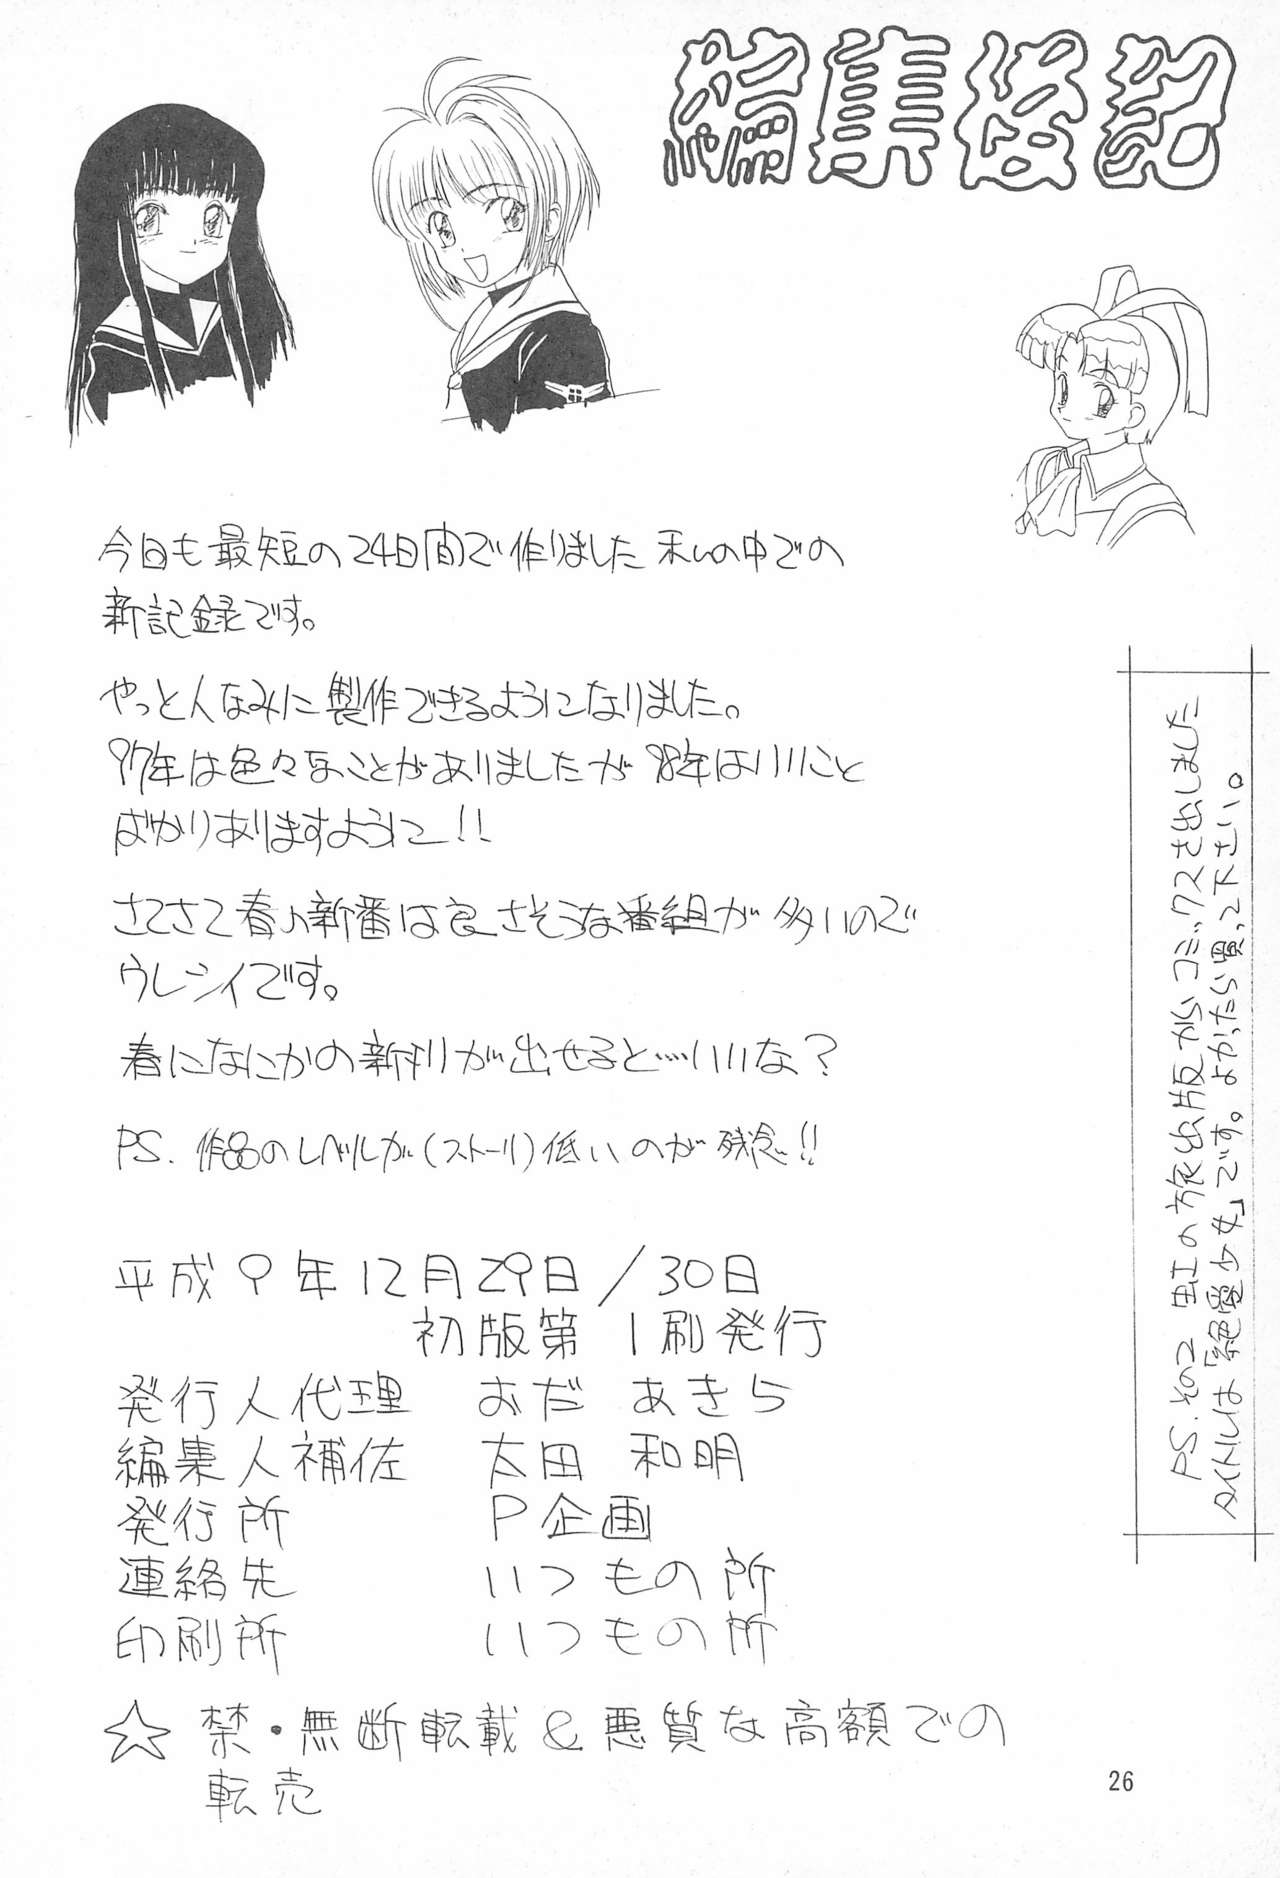 編集後記
今回も最短の24日間で作りました 私の中での
新記録です。
やっと人なみに製作できるようになりました。
97年は色々なことがありましたが 98年はいいこと
ばかりありますように!!
さてさて春の新番は良さそうな番組が多いので
ウレシイです。
春になにかの新刊が出せると……いいな?
PS. 作品のレベルが(ストーリー)低いのが残念!!
平成9年12月29日/30日
初版第1刷発行
発行人代理 おだ あきら
編集人補佐 太田 和明
発行所 P企画
連絡先 いつもの所
印刷所 いつもの所
☆ 禁・無断転載&悪質な高額での
転売
PS.その2 虹の旅出版からコミックスを出しました
タイトルは「絶愛少女」です。よかったら買って下さい。
26